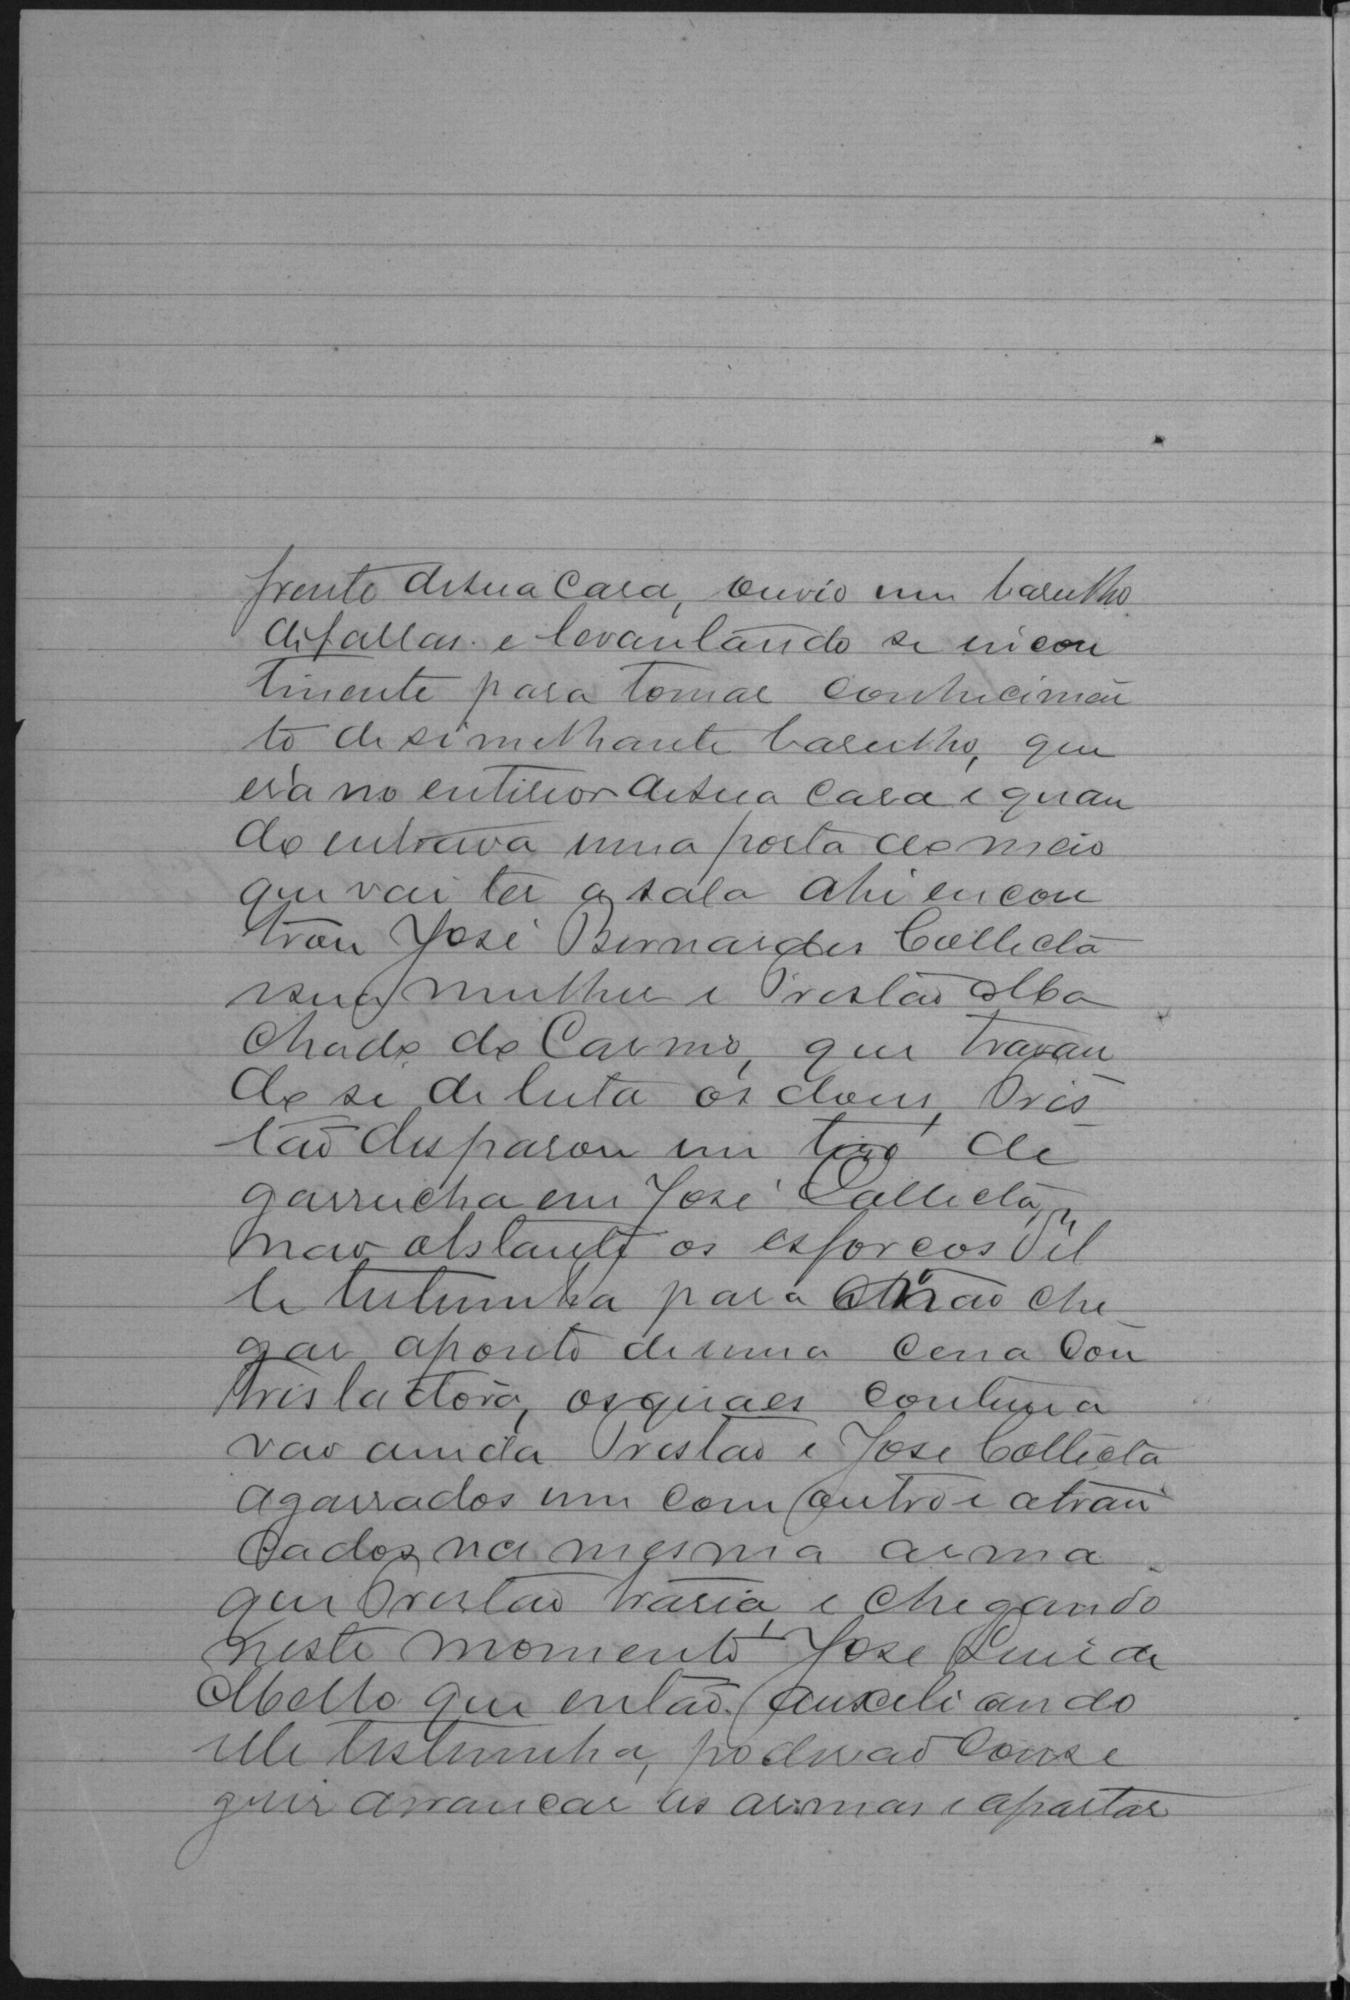 frente de sua Casa, ouvio um barulho
de fallas. e levantando se incon
tinente para tomar conhecimen
to de simelhante barulho, que
era no enterior de sua casa e quan
do entrava uma porta do meio
que vai ter a sala ahi encon
trou José Bernardes Collecta
sua mulher e Tristão Ma
chado do Carmo, que travan
do se de luta os dous, Tris
tão disparou um tiro de
garrucha em José Collecta,
não obstante os esforcos del
le testimunha para não che
gar aponto de uma cena Con
tristadora, os quaes continua
vao ainda Tristao e Jose Collecta
agarrados um com outro e atran
cados na mesma arma
que Tristao trasia, e chegando
neste momento Jose Luiz de
Mello que então auxeliando
elle testimunha, poderao Conse
guir arrancar as armas e apartar